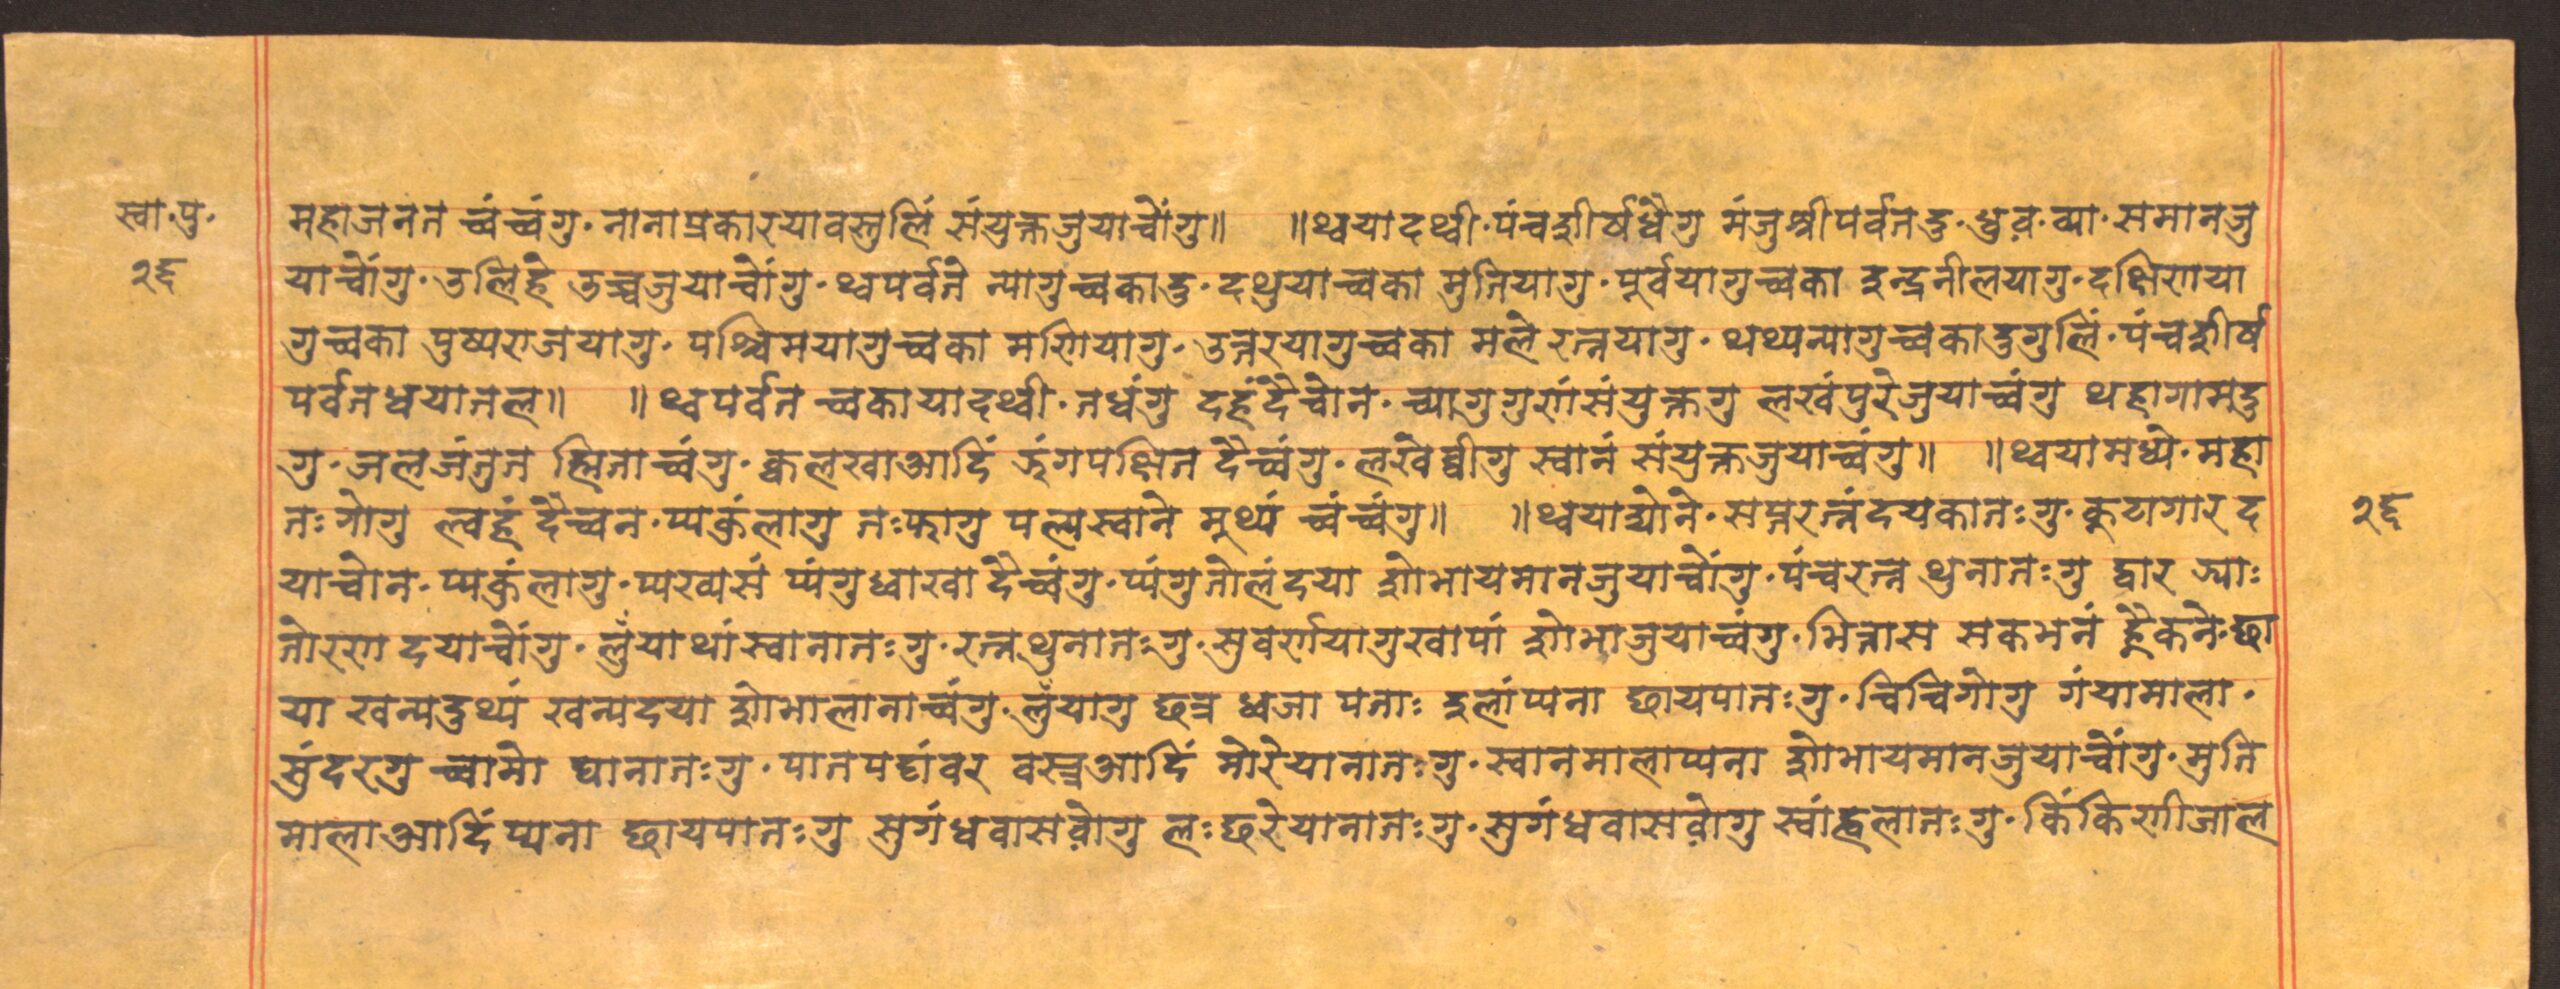 स्वा.पु.
२६
महाजनत च्वंच्वंगु. नानाप्रकारयावस्तुलिं संयुक्तजुयाचोंगु॥ ॥थ्वयादथ्वी. पंचशीर्षधैगु मंजुश्रीपर्वतदु. ध्रुव. व्या. समानजु
याचोंगु. उलिहे उच्चजुयाचोंगु. थ्वपर्वते न्यागुच्वकादु. दथुयाच्वका मुतियागु. पूर्वयागुच्वका इन्द्रनीलयागु. दक्षिणया
गुच्वका पुष्पराजयागु. पश्चिमयागुच्वका मणियागु. उत्तरयागुच्वका मले रत्नयागु. थथ्यन्यागुच्वकादुगुलिं. पंचशीर्ष
पर्वतधयातल॥ ॥थ्वपर्वत च्वकायादथ्वी. तधंगु दहंदैचोन. च्यागुगुणंसंयुक्तगु लखंपुरेजुयाच्वंगु थहागामदु
गु. जलजंतुन ह्मिताच्वंगु. क्वलखाआदिं झंगपक्षित दैच्वंगु. लखेब्वीगु स्वानं संयुक्तजुयाच्वंगु॥ ॥थ्वयामध्ये. महा
तःगोगु ल्वहं दैच्वन. प्यकुंलागु तःफागु पल्यस्वाने मूथ्यं च्वंच्वंगु॥ ॥थ्वयाद्योने. सप्तरत्नंदयकातःगु. कुटागारद
याचोन. प्यकुंलागु. प्यखासं प्यंगुध्वाखा दैच्वंगु. प्यंगुतोलंदया शोभायमानजुयाचोंगु. पंचरत्न थुनातःगु द्वार ज्याः
तोरण दयाचोंगु. लुंयाथां स्वानातःगु. रत्नथुनातःगु. सुवर्णयागुखापां शोभाजुयाच्वंगु. भित्तास सकभनं ह्रैकने. छा
या खन्यदुथ्यं खन्यदया शोभालानाच्वंगु. लुंयागु छत्र ध्वजा पताः इलांप्यना छायपातःगु. चिचिगोगु गंयामाला.
सुंदरगु च्वामो घानातःगु. पातपट्टांवर वस्त्रआदिं नोरेयानातःगु. स्वानमालाप्यना शोभायमानजुयाचोंगु. मुति
मालाआदिंप्यना छायपातःगु सुगंधवासवोगु लःछरेयानातःगु. सुगंधवासवोगु स्वांह्वलातःगु. किंकिणीजाल
२६